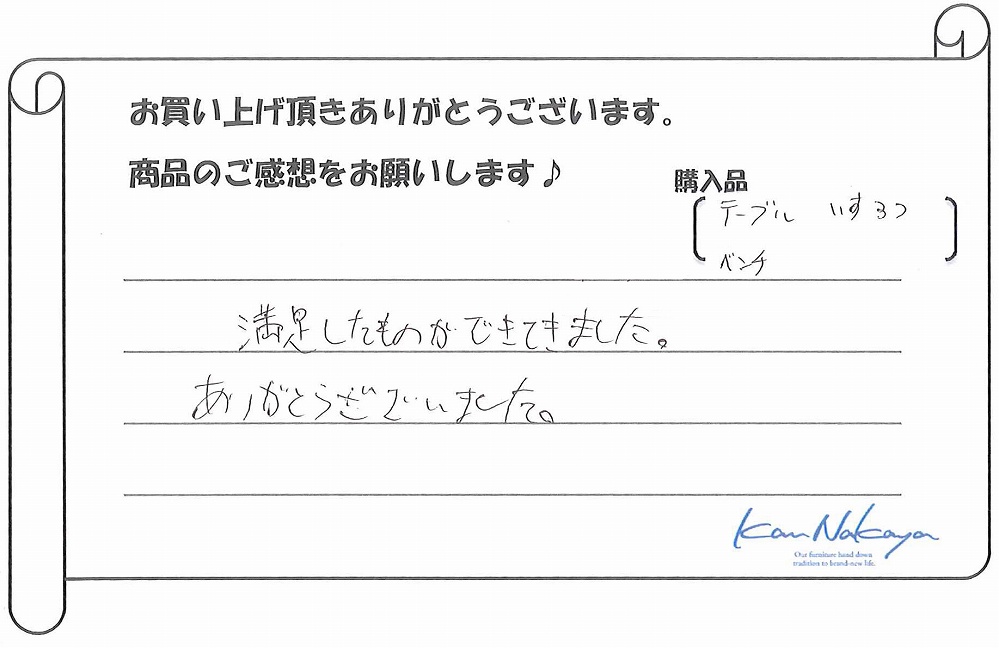 お買い上げ頂きありがとうございます。
商品のご感想をお願いします♪
購入品
テーブル いす3つ
ベンチ
満足したものができてきました。
ありがとうございました。
Kan Nakaya
Our furniture hand down
tradition to brand-new life.